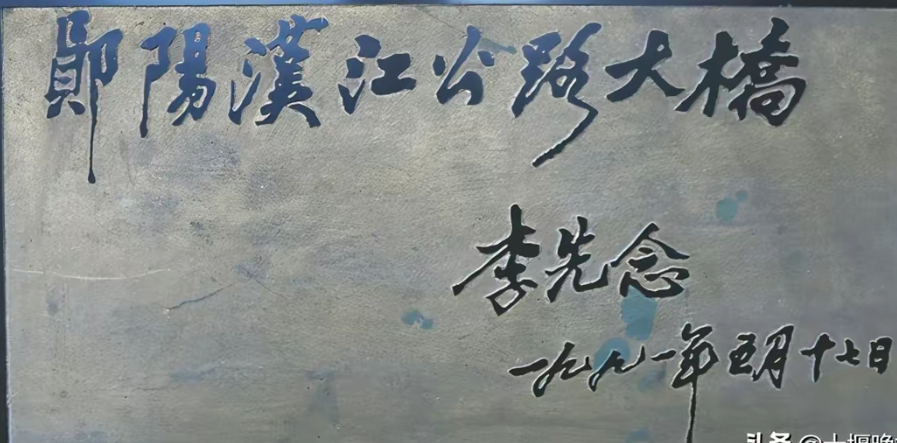 鄖陽漢江公路大橋
李先念
一九九一年五月十七日
头条 @十堰晚